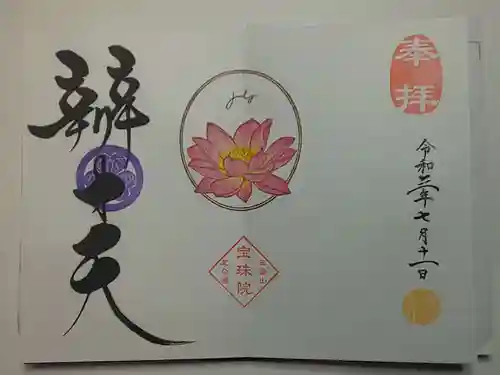 奉拝
令和三年七月十一日
July
宝珠院
辨才天